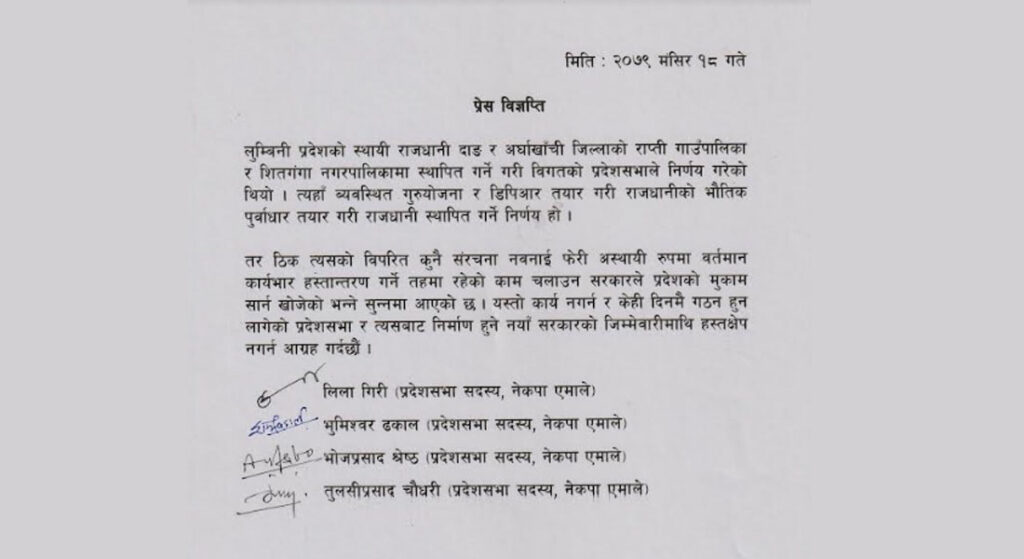 मिति : २०७९ मंसिर १८ गते
प्रेस विज्ञप्ति
लुम्बिनी प्रदेशको स्थायी राजधानी दाङ र अर्घाखाँची जिल्लाको राप्ती गाउँपालिका
र शितगंगा नगरपालिकामा स्थापित गर्ने गरी विगतको प्रदेशसभाले निर्णय गरेको
थियो । त्यहाँ ब्यवस्थित गुरुयोजना र डिपिआर तयार गरी राजधानीको भौतिक
पुर्वाधार तयार गरी राजधानी स्थापित गर्ने निर्णय हो ।
तर ठिक त्यसको विपरित कुनै संरचना नवनाई फेरी अस्थायी रुपमा वर्तमान
कार्यभार हस्तान्तरण गर्ने तहमा रहेको काम चलाउन सरकारले प्रदेशको मुकाम
सार्न खोजेको भन्ने सुन्नमा आएको छ । यस्तो कार्य नगर्न र केही दिनमै गठन हुन
लागेको प्रदेशसभा र त्यसबाट निर्माण हुने नयाँ सरकारको जिम्मेवारीमाथि हस्तक्षेप
नगर्न आग्रह गर्दछौं ।
लिला गिरी (प्रदेशसभा सदस्य, नेकपा एमाले)
भुमिश्वर ढकाल (प्रदेशसभा सदस्य, नेकपा एमाले)
भोजप्रसाद श्रेष्ठ (प्रदेशसभा सदस्य, नेकपा एमाले)
तुलसीप्रसाद चौधरी (प्रदेशसभा सदस्य, नेकपा एमाले)